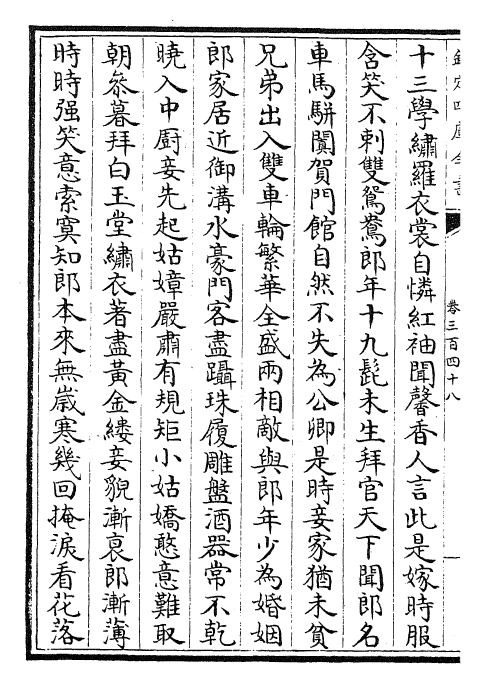 欽定四庫全書
卷三百四十八
十三學繡羅衣裳自憐紅袖聞馨香人言此是嫁時服
含笑不刺雙鴛鴦郎年十九髭未生拜官天下聞郎名
車馬駢闐賀門館自然不失為公卿是時妾家猶未貧
兄弟出入雙車輪繁華全盛兩相敵與郎年少為婚姻
郎家居近御溝水豪門客盡躡珠履雕盤酒器常不乾
曉入中厨妾先起姑嫜嚴肅有規矩小姑嬌憨意難取
朝參暮拜白玉堂繡衣著盡黃金縷妾貌漸衰郎漸薄
時時强笑意索寞知郎本來無歲寒幾回掩淚看花落